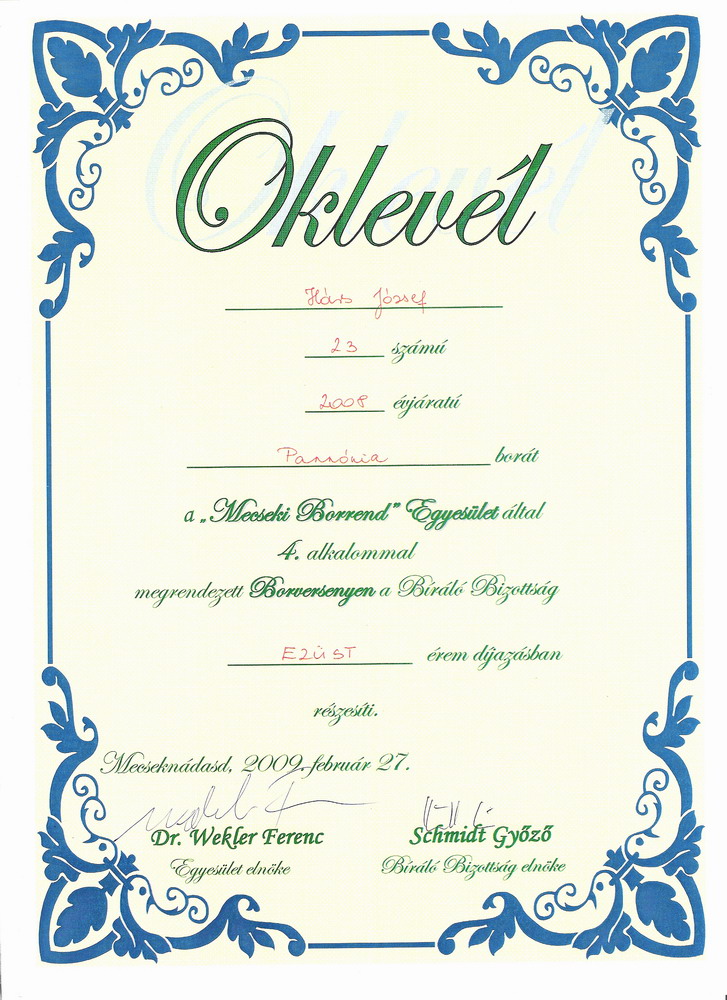 Oklevél
Hárs József
23 számú
2008 évjáratú
Pannónia borát
a „Mecseki Borrend” Egyesület által
4. alkalommal
megrendezett Borversenyen a Bíráló Bizottság
EZÜST érem díjazásban
részesíti.
Mecseknádasd, 2009. február 27.
Dr. Wekler Ferenc Schmidt Győző
Egyesület elnöke Bíráló Bizottság elnöke